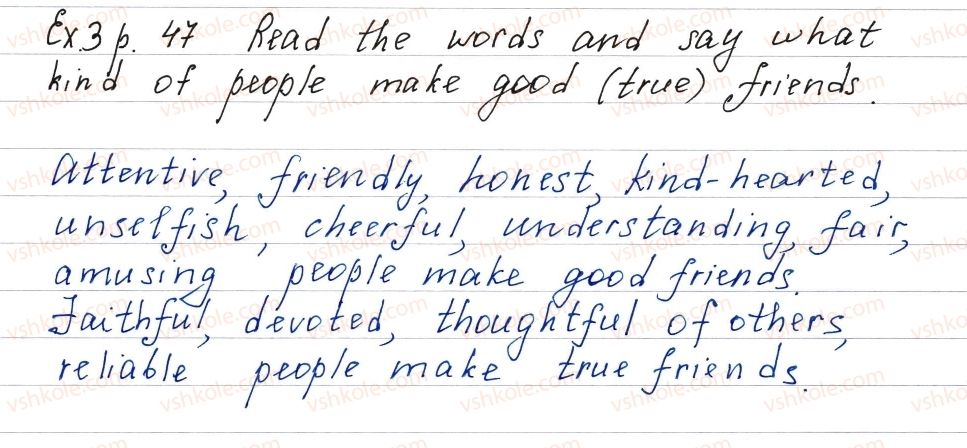 Ex 3 p. 47 Read the words and say what
kind of people make good (true) friends.
Attentive, friendly, honest, kind-hearted,
unselfish, cheerful, understanding, fair,
amusing people make good friends.
Faithful, devoted, thoughtful of others,
reliable people make true friends.